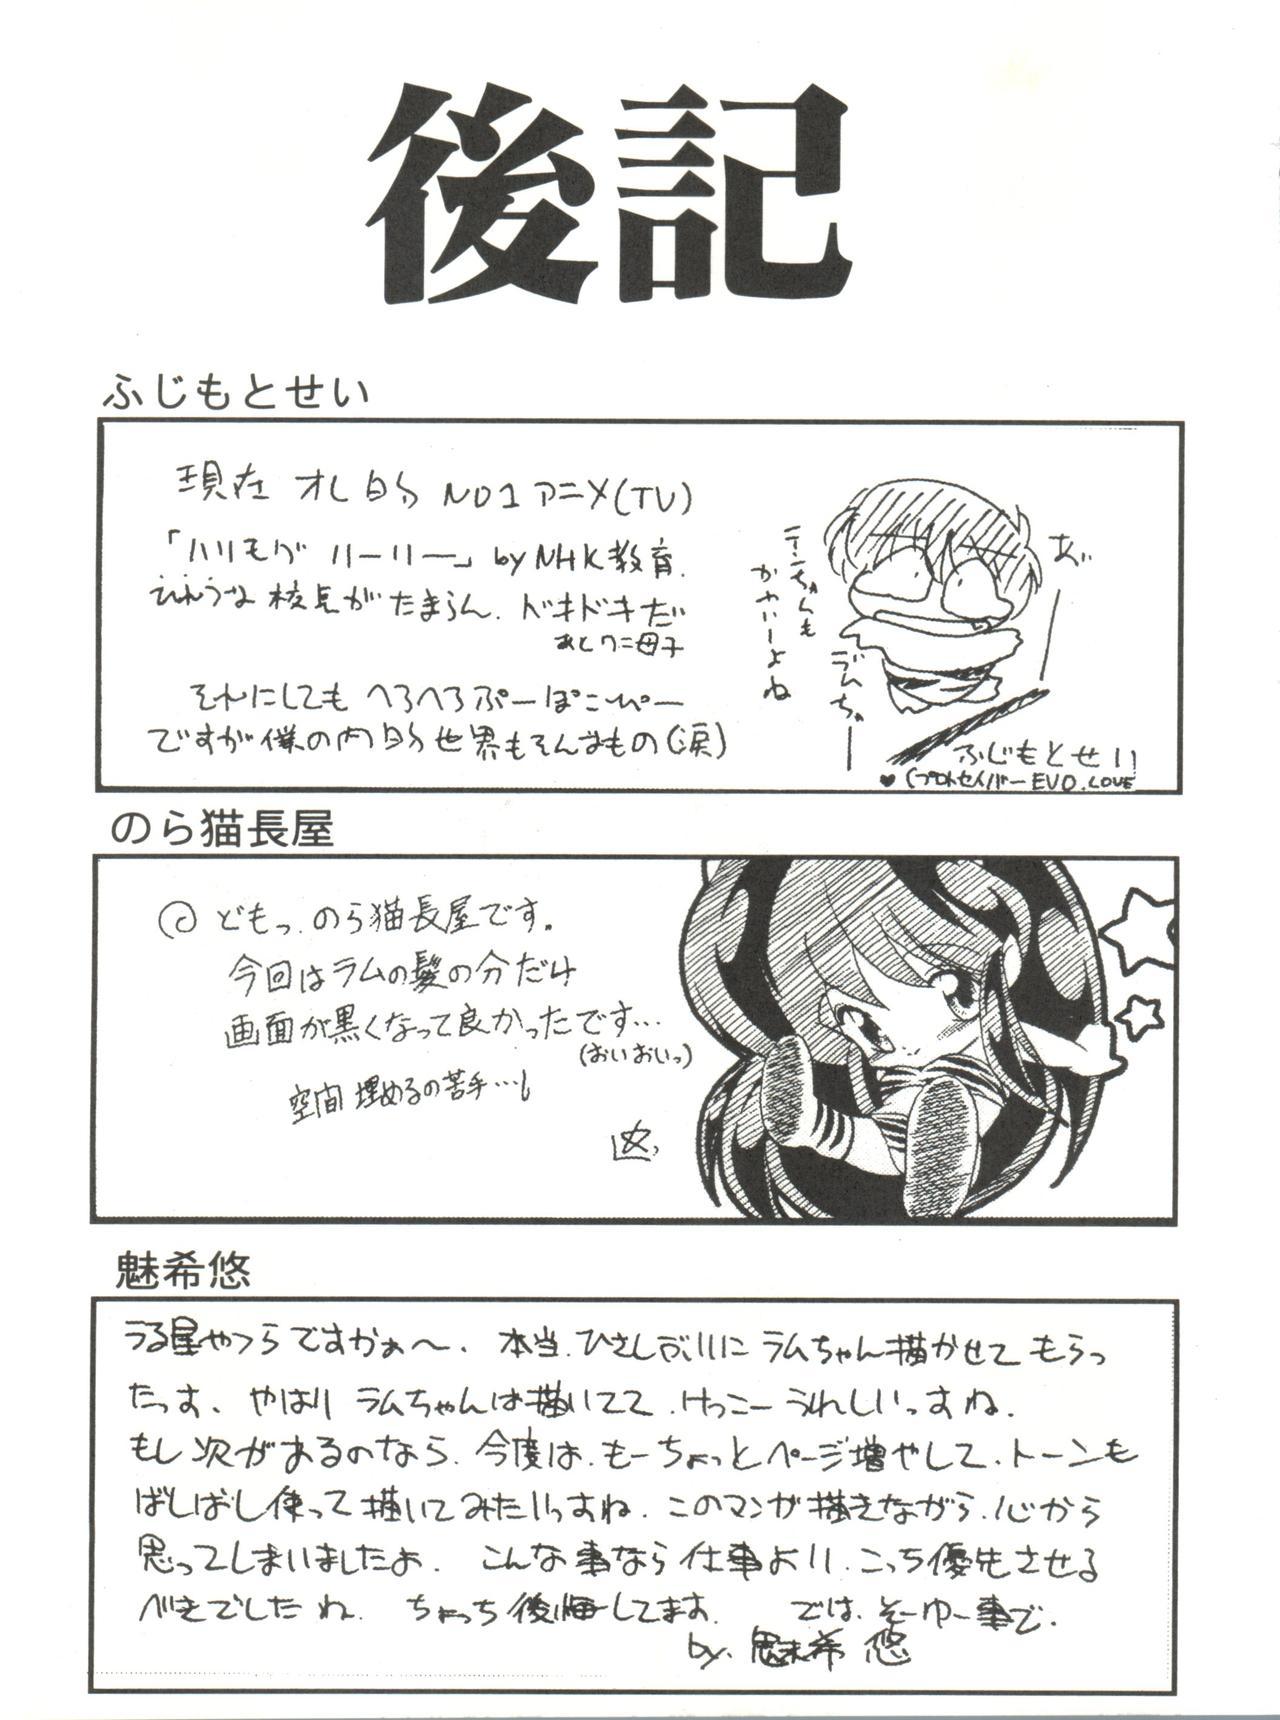 後記
ふじもとせい
現在 オレ的 NO1 アニメ(TV)
「ハリモグ ハーリー」 by NHK教育.
びみょうな 校長がたまらん. ドキドキだ
あと ワニ母子
それにしても へろへろぷーぽこぴー
ですが僕の内的世界もそんなもの(涙)
テンちゃんも
かわいーよね
ラムちゃー
あ゛
ふじもとせい
♥(プロトセイバーEVO.LOVE
のら猫長屋
どもっ.のら猫長屋です.
今回はラムの髪の分だけ
画面が黒くなって良かったです…
(おいおいっ)
空間埋めるの苦手…
魅希悠
うる星やつらですかぁ〜. 本当.ひさしぶりに ラムちゃん描かせて もらっ
たっす. やはり ラムちゃんは描いてて.けっこーうれしいっすね.
もし次があるのなら.今度は.もーちょっとページ増やして.トーンも
ばしばし使って描いてみたいっすね.このマンガ描きながら.心から
思ってしまいましたよ. こんな事なら仕事より.こっち優先させる
べきでしたね. ちょっち後悔してます. では.そーゆー事で.
by. 魅希 悠